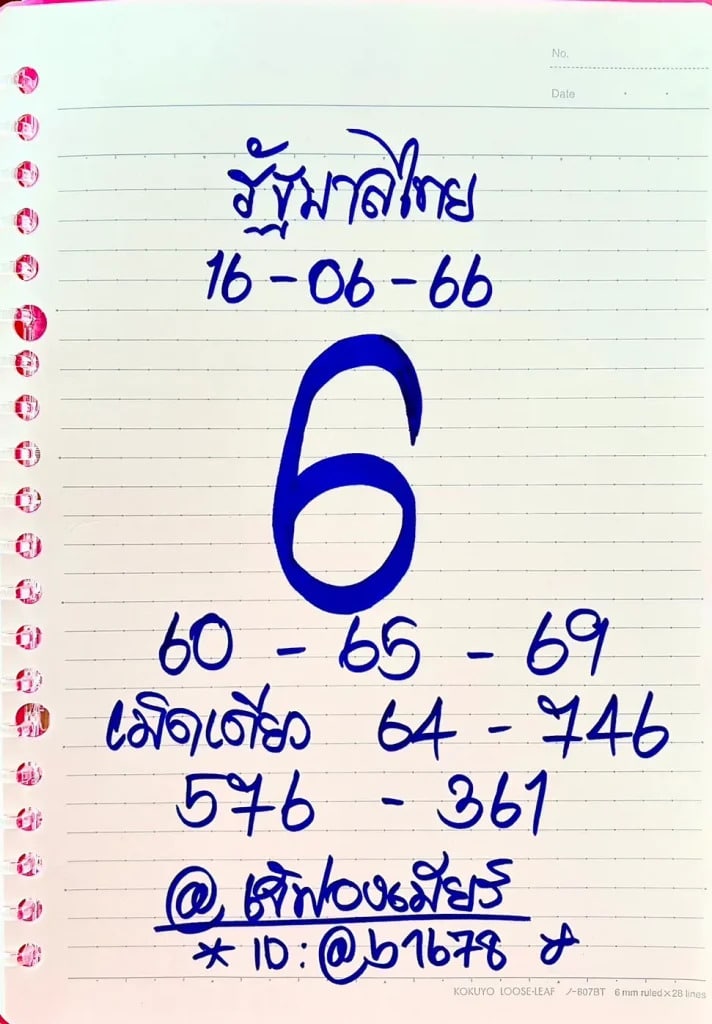 No.
Date
รัฐบาลไทย
16 - 06 - 66
6
60 - 65 - 69
เม็ดเดียว 64 - 746
576 - 361
@ เจ๊ฟองเบียร์
* ID: @b1678 *
KOKUYO LOOSE-LEAF ノ-807BT 6 mm ruled×28 lines